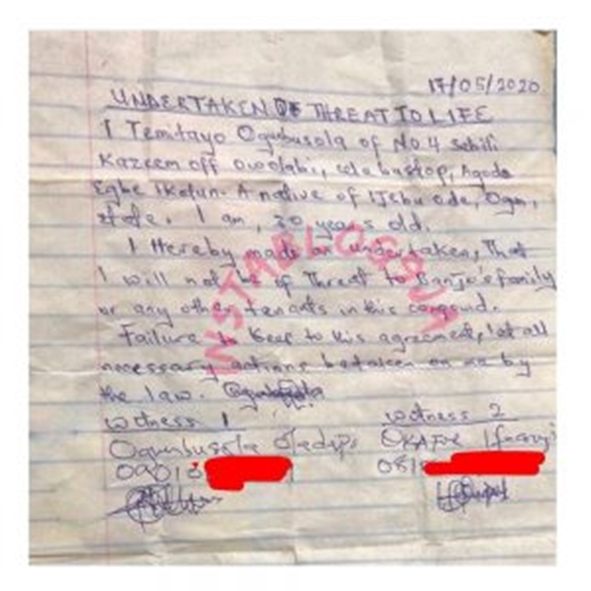 17/05/2020
UNDERTAKEN OF THREAT TO LIFE
I Temitayo Ogunbusola of No 4
Kazeem off Owolabi, bustop, Agodo
Egbe Ikotun. A native of Ijebu ode, Ogun,
state. I am, 30 years old.
I Hereby made an undertaken, That
I will not be of Threat to Banjo's family
or any other tenants in this compound.
Failure to keep to this agreement, let all
necessary actions be taken on me by
the law.
witness 1
witness 2
Ogunbusola Oladipo
OKAFOR Ifeanyi
0901
081
INSTABLOG9JA